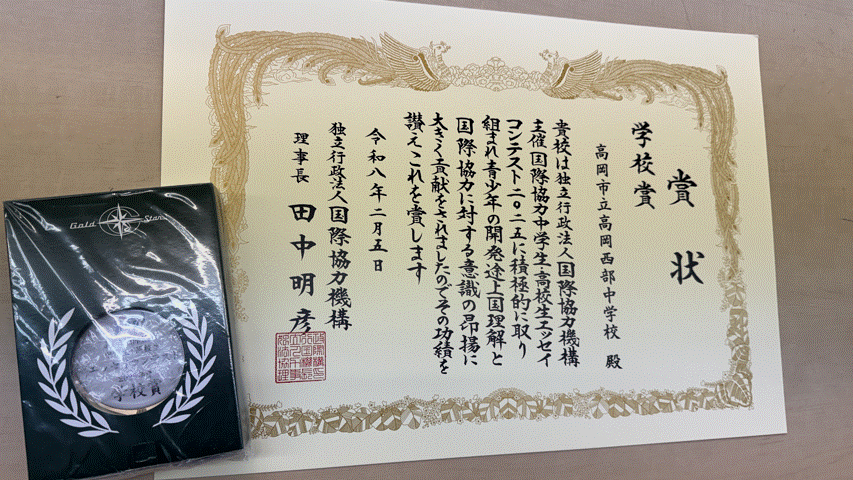 賞状
学校賞
高岡市立高岡西部中学校 殿
貴校は独立行政法人国際協力機構
主催国際協力中学生・高校生エッセイ
コンテスト二〇二五に積極的に取り
組まれ青少年の開発途上国理解と
国際協力に対する意識の昂揚に
大きく貢献をされましたのでその功績を
讃えこれを賞します
令和八年二月五日
独立行政法人国際協力機構
理事長 田中明彦
Gold Star
学校賞